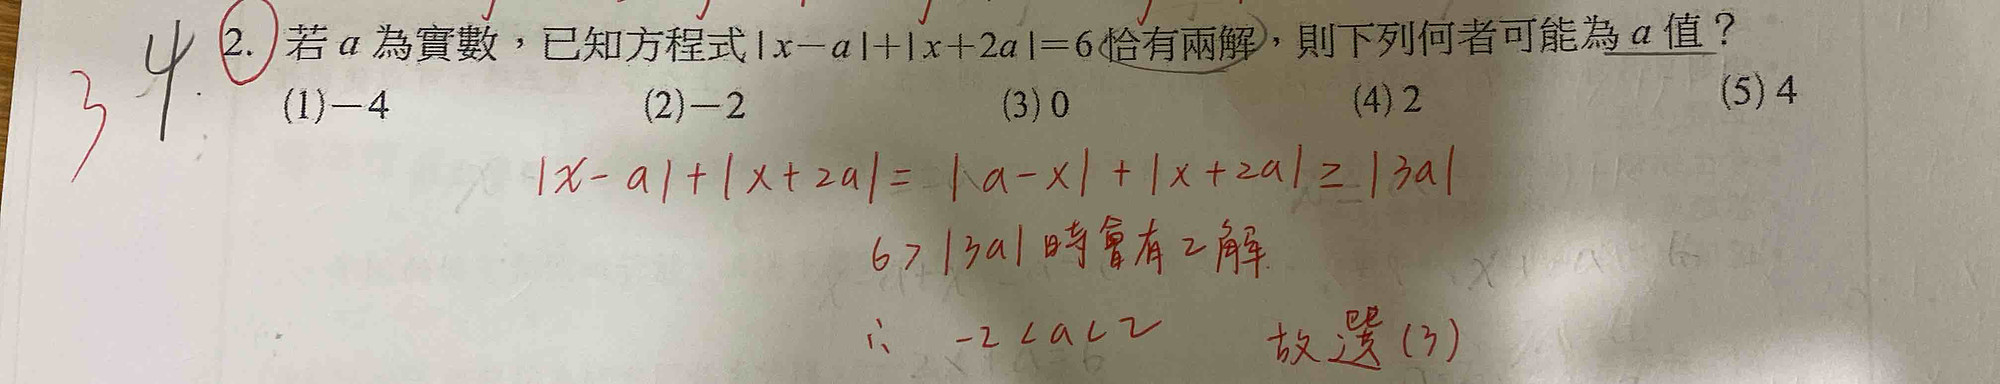 3 4. 2. 若 a 為實數，已知方程式|x－a|＋|x＋2a|＝6恰有兩解，則下列何者可能為 a 值？
(1)－4 (2)－2 (3) 0 (4) 2 (5) 4
|x-a|+|x+2a|= |a-x|+|x+2a|≥|3a|
6>|3a|時會有2解
∴ -2<a<2 故選(3)